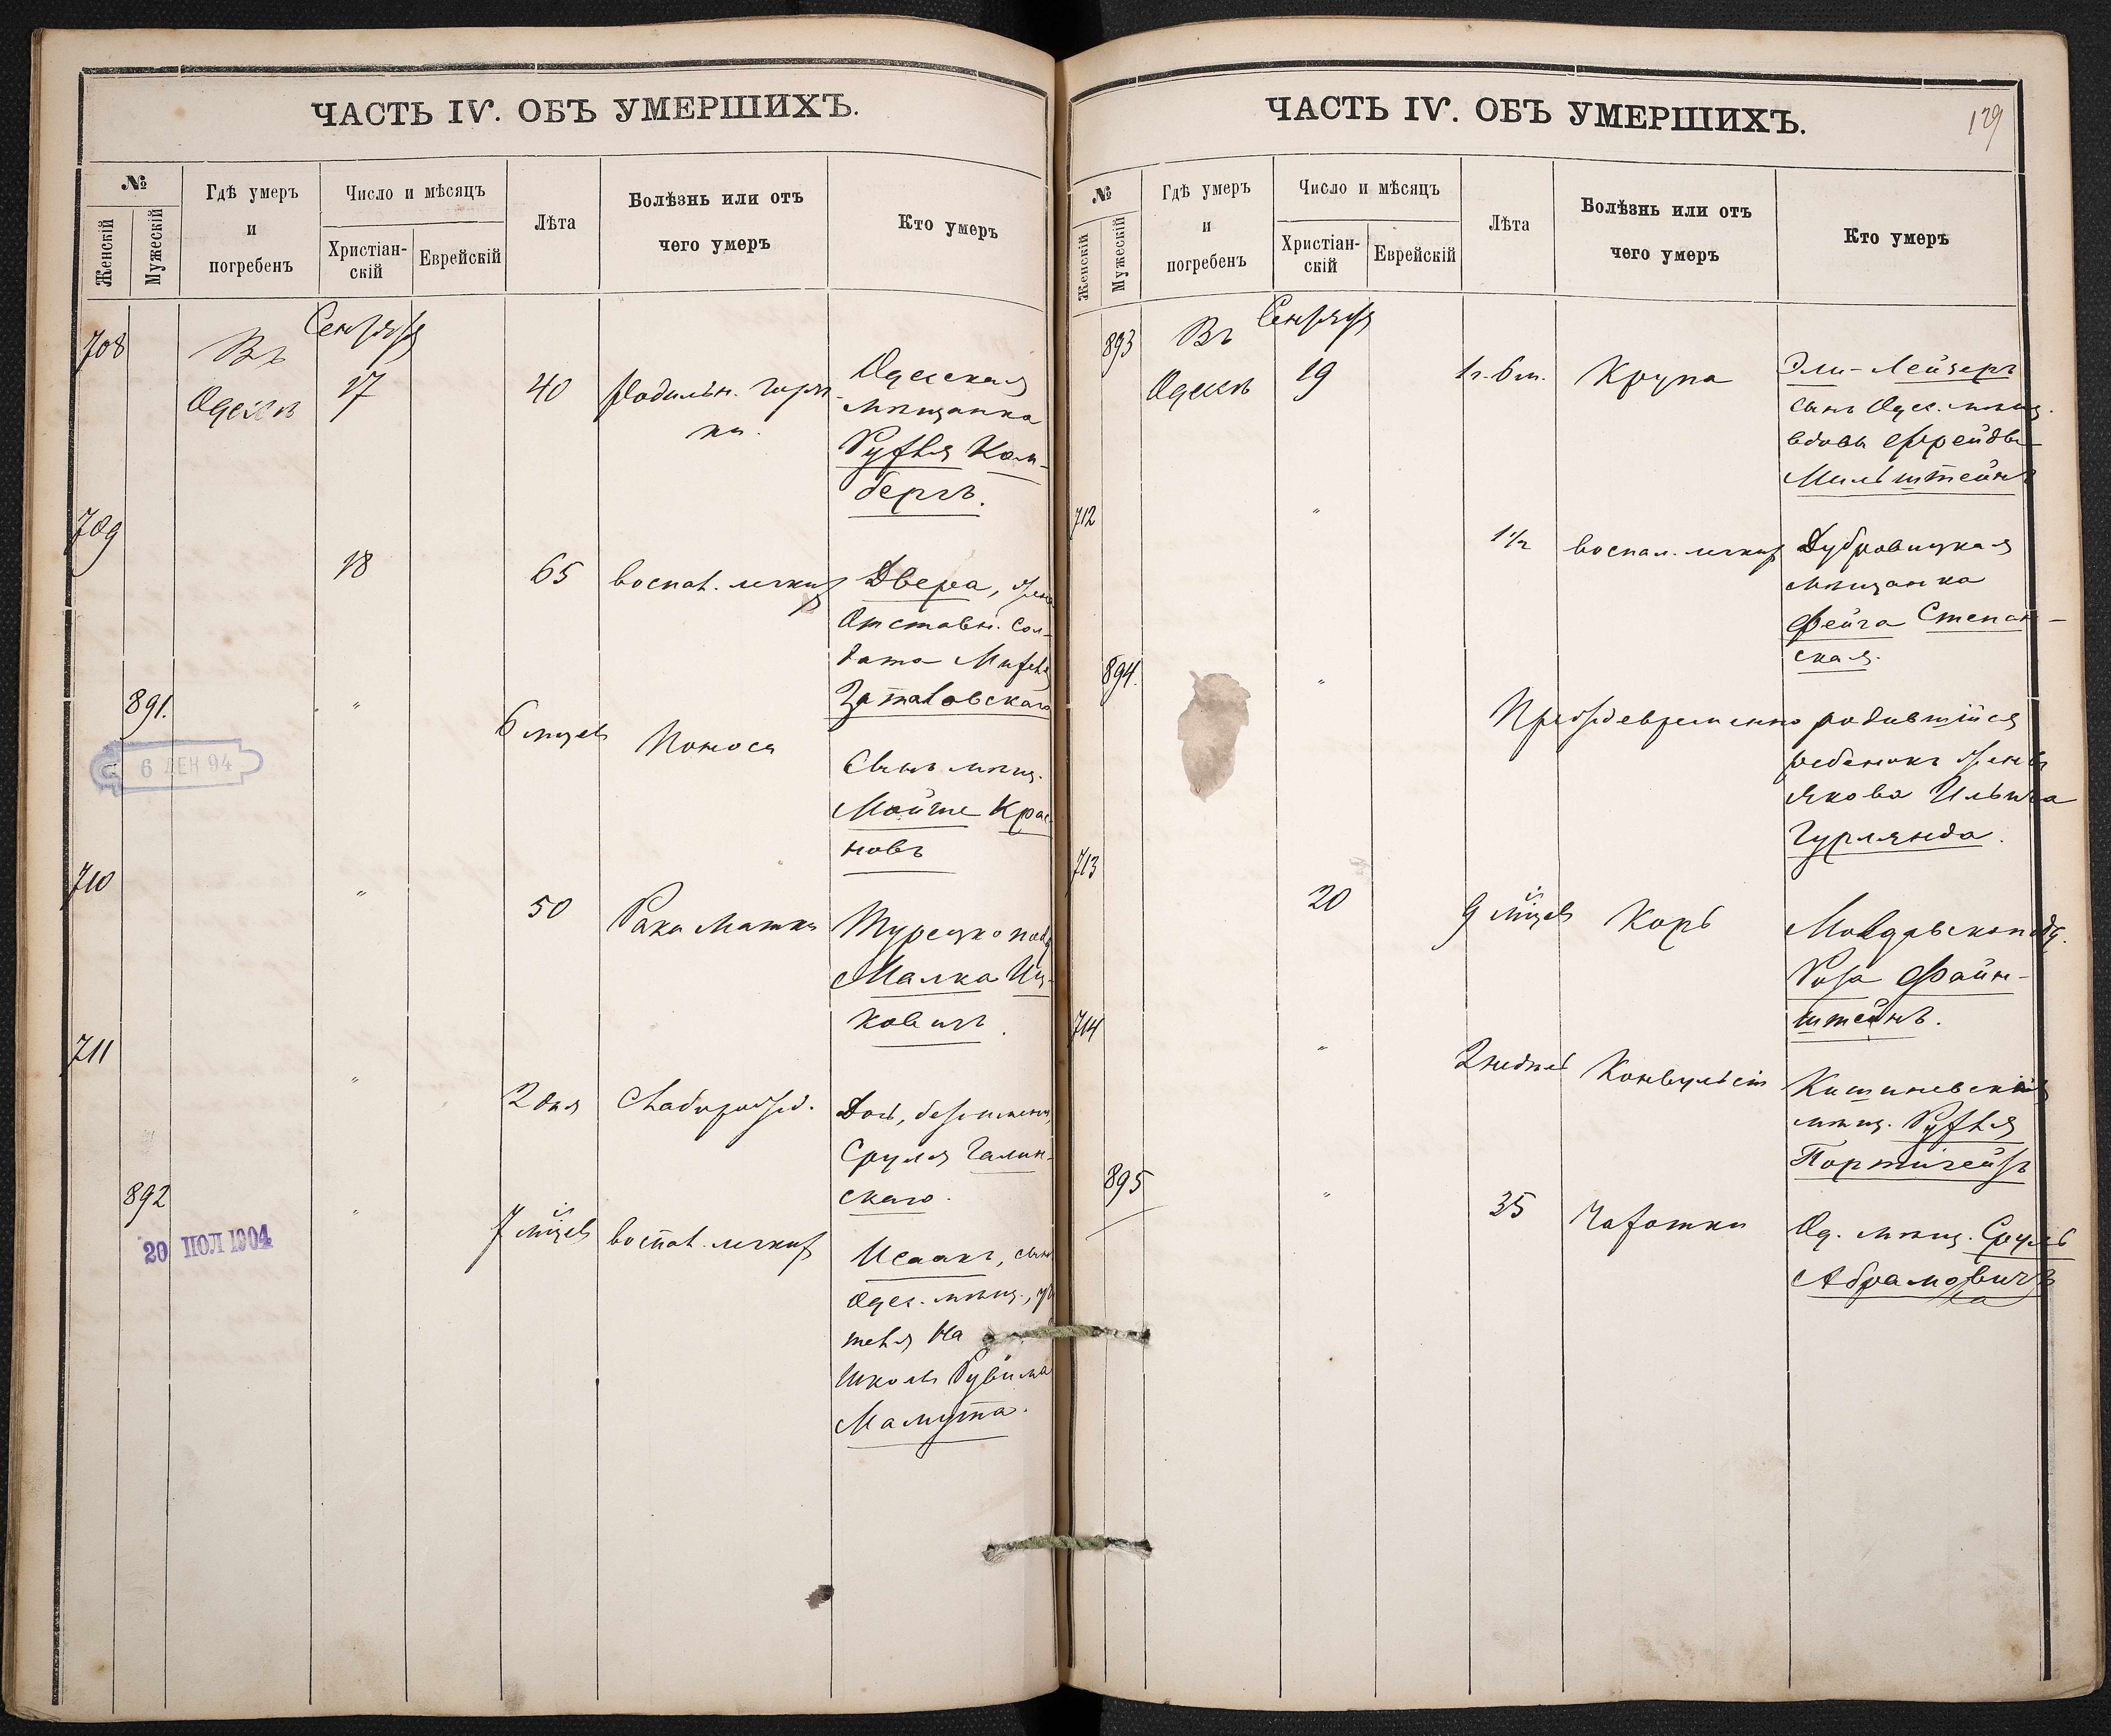 ЧАСТЬ IV. ОБЪ УМЕРШИХЪ.
№
Женскій
Мужескій
Гдѣ умеръ
и
погребенъ
Число и мѣсяцъ
Христіан-
скій
Еврейскій
Лѣта
Болѣзнь или отъ
чего умеръ
Кто умеръ
708
Въ
Одессѣ
Сентября
17
40
Родильн. горяч
ки.
Одесская
мѣщанка
Рухля Кам-
бергъ.
709
18
65
воспал. легких
Двера, жена
Отставн. Сол-
дата Михеля
Заталовскаго
891.
6 мцевъ
Поноса
Сынъ мѣщ.
Мойше Крас
новъ
6 ДЕК 94
710
50
Рака матки
Турецко подд
Малка Иц-
ковичъ.
711
2 дня
Слаборожд.
Дочь, безъименн,
Сруля Галин-
скаго.
892
7 мцевъ
воспал. легких
Исаакъ, сынъ
Одес. мѣщ., учи
теля на
школѣ Рувима
Мамута.
20 ІЮЛ 1904
ЧАСТЬ IV. ОБЪ УМЕРШИХЪ.
129
№
Женскій
Мужескій
Гдѣ умеръ
и
погребенъ
Число и мѣсяцъ
Христіан-
скій
Еврейскій
Лѣта
Болѣзнь или отъ
чего умеръ
Кто умеръ
893
Въ
Одессѣ
Сентября
19
1г. 6м.
Крупа
Эли-Лейзеръ
сынъ Одес. мѣщ.
вдовы Фрейды
Мильштейнъ
712
"
1 1/2
воспал. легких
Дубровицкая
мѣщанка
Фейга Степан-
ская.
894.
"
Преждевременно родившійся
ребенокъ жены
Якова Ильича
Гурлянда.
713
20
9 мцевъ
Корь
Молдавскопод.
Роза Файн-
штейнъ.
714
"
2 недѣль
Конвульсіи
Кишиневская
мѣщ. Рухля
Портигейзъ
895
"
35
Чахотки
Од. мѣщ. Сруль
Абрамовичъ